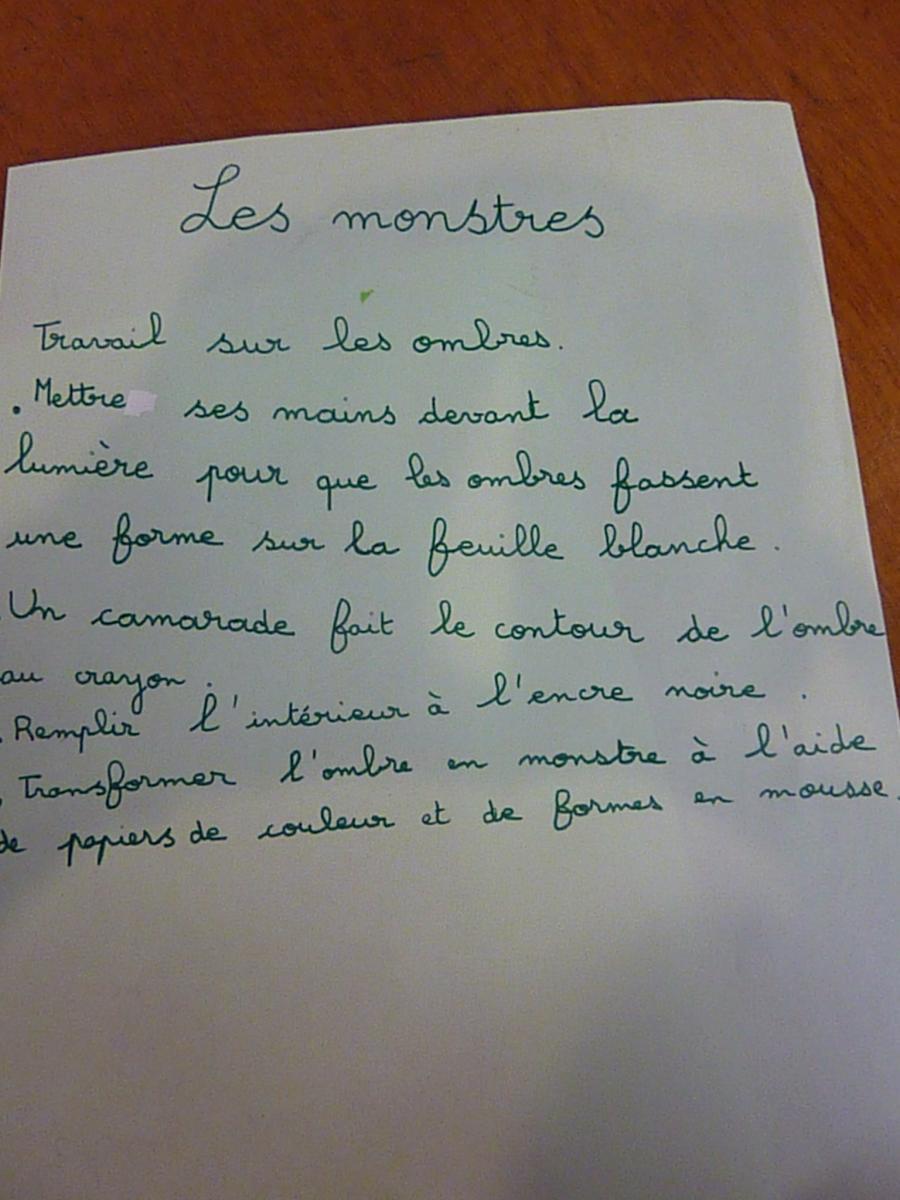 Les monstres
Travail sur les ombres.
. Mettre ses mains devant la
lumière pour que les ombres fassent
une forme sur la feuille blanche.
. Un camarade fait le contour de l'ombre
au crayon.
. Remplir l'intérieur à l'encre noire.
. Transformer l'ombre en monstre à l'aide
de papiers de couleur et de formes en mousse.